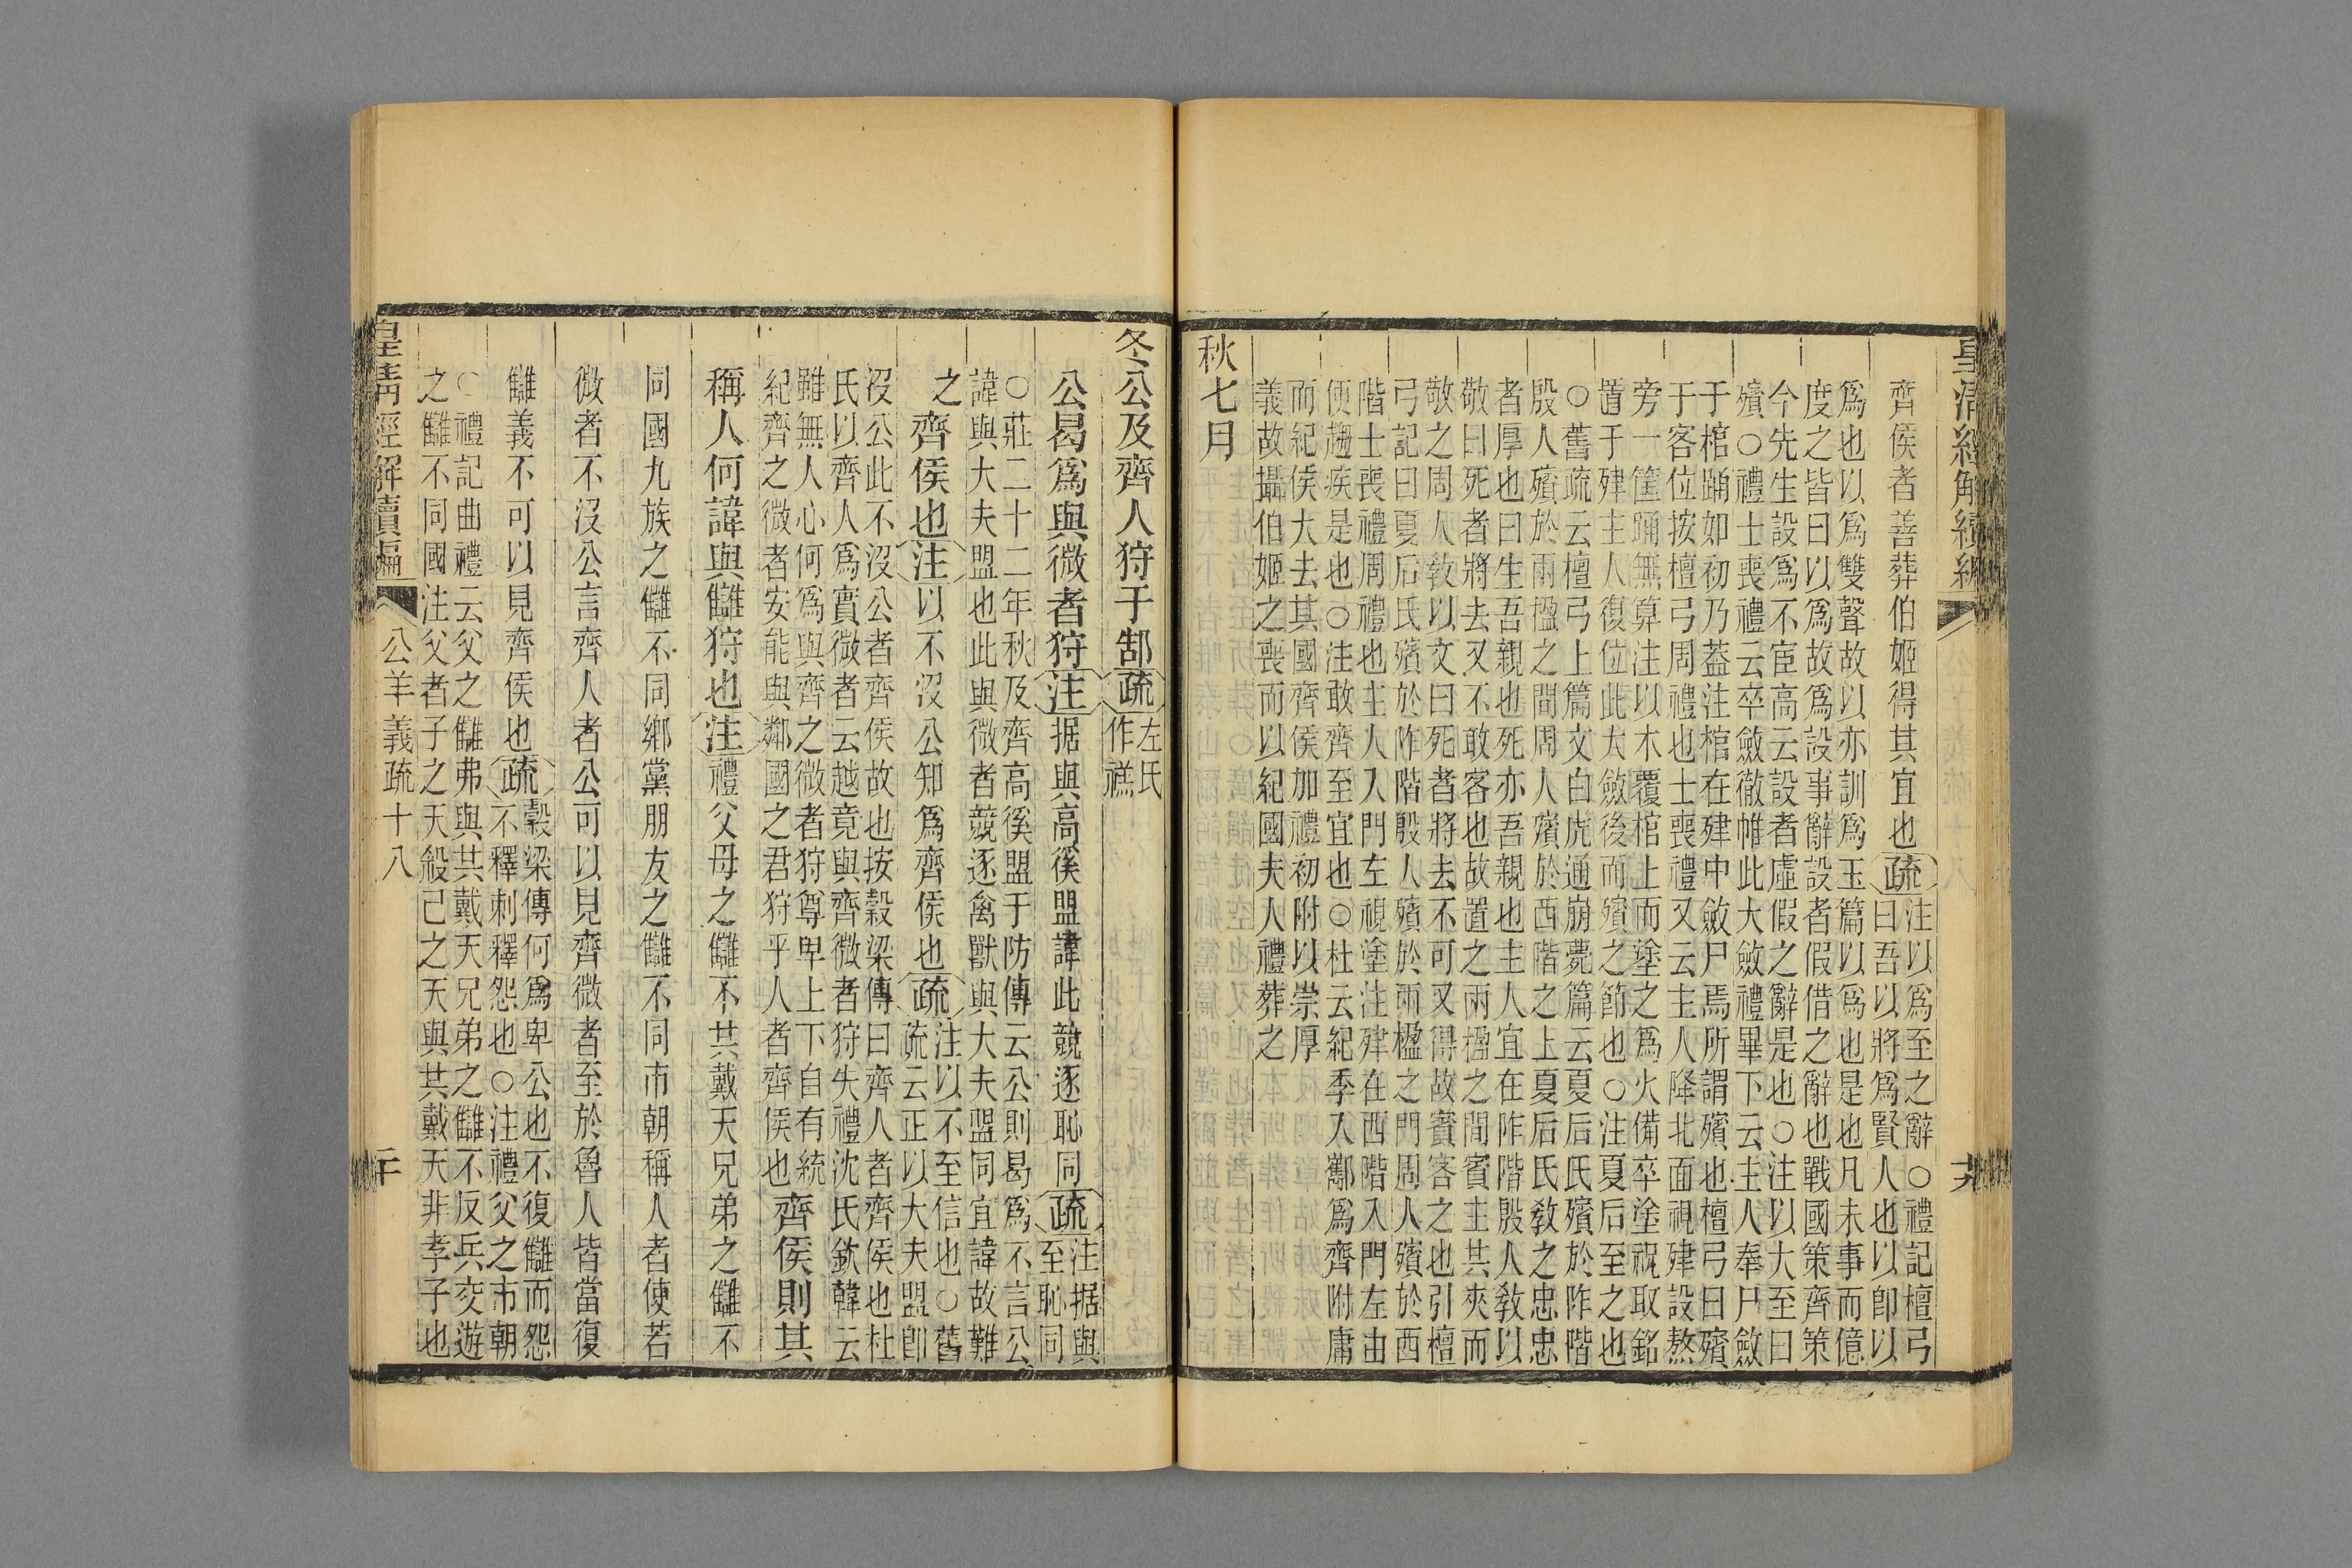 皇清經解續編
齊侯者善葬伯姬得其宜也疏注以爲至之辭○禮記檀弓
曰吾以將爲賢人也以卽以
爲也以爲雙聲故以亦訓爲玉篇以爲也是也凡未事而億
度之皆曰以爲故爲設事辭設者假借之辭也戰國策齊策
今先生設爲不宦高云設者虛假之辭是也○注以大至曰
殯○禮士喪禮云卒斂徹帷此大斂禮畢下云主人奉尸斂
于棺踊如初乃葢注棺在肂中斂尸焉所謂殯也檀弓曰殯
于客位按檀弓周禮也士喪禮又云主人降北面視肂設熬
旁一筐踊無算注以木覆棺上而塗之爲火備卒塗祝取銘
置于肂主人復位此大斂後而殯之節也○注夏后至之也
○舊疏云檀弓上篇文白虎通崩薨篇云夏后氏殯於阼階
殷人殯於兩楹之間周人殯於西階之上夏后氏敎之忠忠
者厚也曰生吾親也死亦吾親也主人宜在阼階殷人敎以
敬曰死者將去又不敢客也故置之兩楹之間賓主共夾而
敬之周人敎以文曰死者將去不可又得故賓客之也引檀
弓記曰夏后氏殯於阼階殷人殯於兩楹之門周人殯於西
階士喪禮周禮也主人入門左視塗注肂在西階入門左由
便趨疾是也○注敢齊至宜也○杜云紀季入酅爲齊附庸
而紀侯大去其國齊侯加禮初附以崇厚
義故攝伯姬之喪而以紀國夫人禮葬之
秋七月
冬公及齊人狩于郜疏左氏
作禚
公曷爲與微者狩注据與高徯盟諱此競逐恥同疏注据與
至恥同
○莊二十二年秋及齊高徯盟于防傳云公則曷爲不言公
諱與大夫盟也此與微者競逐禽獸與大夫盟同宜諱故難
之齊侯也注以不沒公知爲齊侯也疏注以不至信也○舊
疏云正以大夫盟卽
沒公此不沒公者齊侯故也按穀梁傳曰齊人者齊侯也杜
氏以齊人爲實微者云越竟與齊微者狩失禮沈氏欽韓云
雖無人心何爲與齊之微者狩尊卑上下自有統
紀齊之微者安能與鄰國之君狩乎人者齊侯也齊侯則其
稱人何諱與讎狩也注禮父母之讎不共戴天兄弟之讎不
同國九族之讎不同鄉黨朋友之讎不同市朝稱人者使若
微者不沒公言齊人者公可以見齊微者至於魯人皆當復
讎義不可以見齊侯也疏穀梁傳何爲卑公也不復讎而怨
不釋刺釋怨也○注禮父之市朝
○禮記曲禮云父之讎弗與共戴天兄弟之讎不反兵交遊
之讎不同國注父者子之天殺己之天與共戴天非孝子也
皇清經解續編　公羊義疏十八　二十